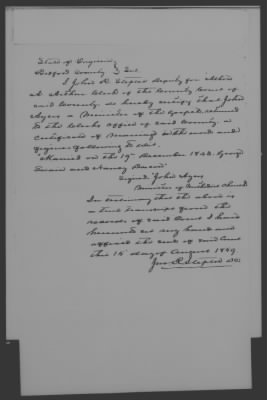 State of Virginia
Bedford County } Sct.
I John R. Steptoe deputy for
A Clerk of the County Court of
said County, do hereby certify that John
Ayers a Minister of the Gospel returned
to the Clerks office of said County, a
Certificate of Marriage in the words and
figures following to wit.
"Married on the 19th December 1842. George
and Nancy
Signed John Ayers
Minister of Methodist Church
In testimony that the above is
a true transcript from the
records of said Court I have
hereunto set my hand and
affixed the seal of said Court
this 15 day of August 1849.
Jno R Steptoe DC